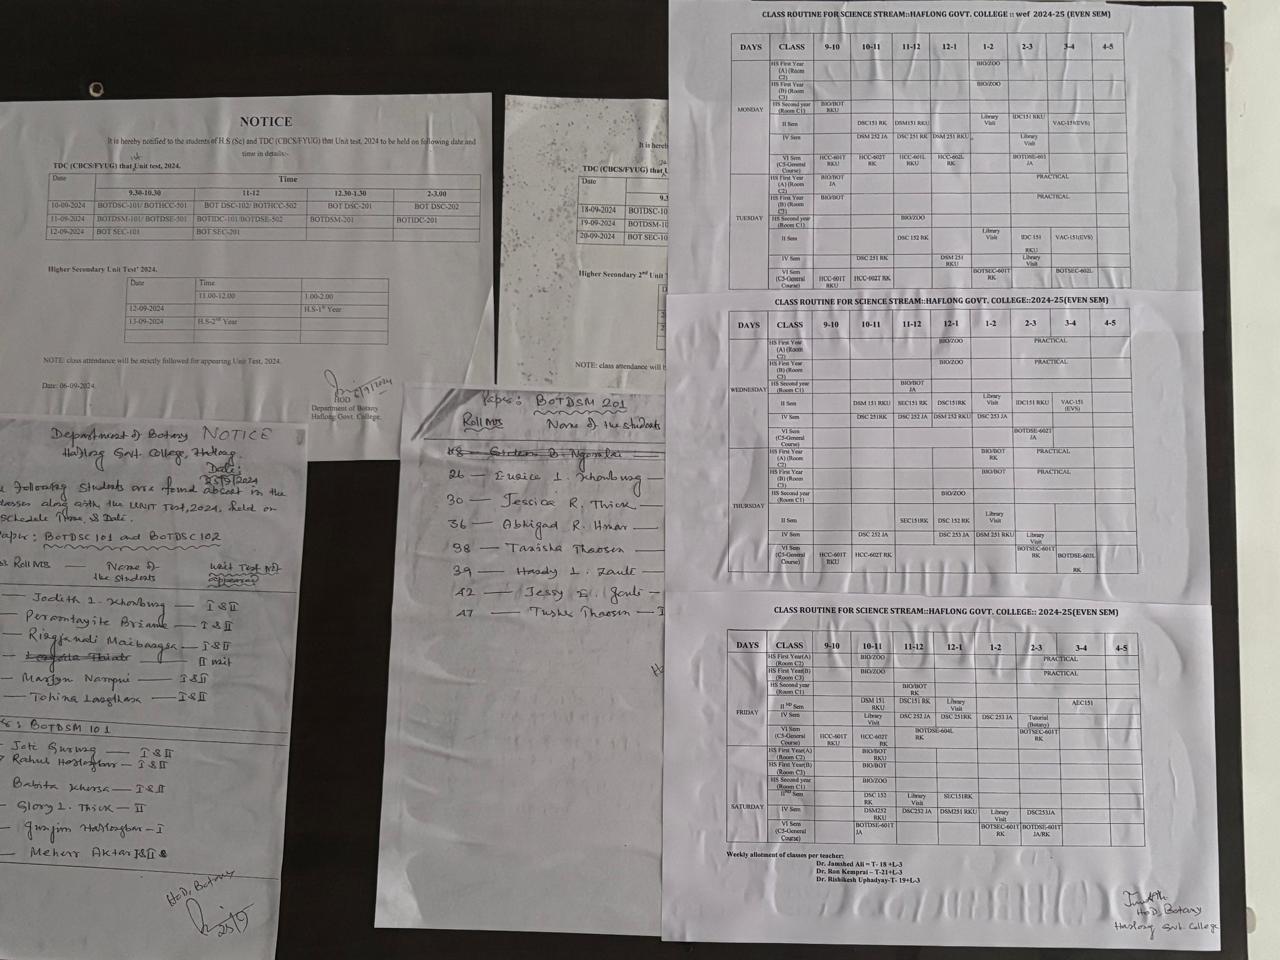 NOTICE
It is hereby notified to the students of H.S (Sc) and TDC (CBCS/FYUG) that Unit test, 2024 to be held on following date and
time in details:-
TDC (CBCS/FYUG) that 1st Unit test, 2024.
Date Time
9.30-10.30 11-12 12.30-1.30 2-3.00
10-09-2024 BOTDSC-101/ BOTHCC-501 BOT DSC-102/ BOTHCC-502 BOT DSC-201 BOT DSC-202
11-09-2024 BOTDSM-101/ BOTDSE-501 BOTIDC-101/BOTDSE-502 BOTDSM-201 BOTIDC-201
12-09-2024 BOT SEC-101 BOT SEC-201
Higher Secondary Unit Test' 2024.
Date Time
11.00-12.00 1.00-2.00
12-09-2024 H.S-1st Year
13-09-2024 H.S-2nd Year
NOTE: class attendance will be strictly followed for appearing Unit Test, 2024.
Date: 06-09-2024
6/9/2024
HOD
Department of Botany
Haflong Govt. College.
It is hereb
TDC (CBCS/FYUG) that
Date
18-09-2024 BOTDSC-10
19-09-2024 BOTDSM-10
20-09-2024 BOT SEC-10
Higher Secondary 2nd Unit
NOTE: class attendance will b
Department of Botany NOTICE
Haflong Govt. College, Haflong.
Date:
Following students are found absent in the
classes along with the UNIT Test, 2024, held on
schedule Time & Date.
Paper: BOTDSC 101 and BOTDSC 102
Roll Nos — Name of the students Unit Test Not appeared
— Jodith I. Khonbung — I & II
— I & II
— I & II
— II unit
— I & II
— I & II
BOTDSM 101
Joti Gurung — I & II
Rahul Hoslogbar — I & II
Babita — I & II
— Glory L. Thiek — II
— I
— Meherr Aktar I & II
HoD, Botany
25/9
Paper: BOTDSM 201
Roll Nos Name of the students
26 — Eunice L. Khonbung —
30 — Jessica R. Thiek —
36 — Abhigad R. Hmar —
98 — Tanisha Thaosen —
39 — Hardy L. —
42 — Jessy —
47 — Thaosen — I
CLASS ROUTINE FOR SCIENCE STREAM::HAFLONG GOVT. COLLEGE :: wef 2024-25 (EVEN SEM)
DAYS CLASS 9-10 10-11 11-12 12-1 1-2 2-3 3-4 4-5
MONDAY
HS First Year (A) (Room C2) BIO/ZOO
HS First Year (B) (Room C3) BIO/ZOO
HS Second year (Room C1) BIO/BOT RKU
II Sem DSC151 RK DSM151 RKU Library Visit IDC151 RKU VAC-151(EVS)
IV Sem DSM 252 JA DSC 251 RK DSM 251 RKU Library Visit
VI Sem (C5-General Course) HCC-601T RKU HCC-602T RK HCC-601L RKU HCC-602L RK BOTDSE-601 JA
TUESDAY
HS First Year (A) (Room C2) BIO/BOT JA PRACTICAL
HS First Year (B) (Room C3) BIO/BOT PRACTICAL
HS Second year (Room C1) BIO/ZOO
II Sem DSC 152 RK Library Visit IDC 151 RKU VAC-151(EVS)
IV Sem DSC 251 RK DSM 251 RKU Library Visit
VI Sem (C5-General Course) HCC-601T RKU HCC-602T RK BOTSEC-601T RK BOTSEC-602L
CLASS ROUTINE FOR SCIENCE STREAM::HAFLONG GOVT. COLLEGE::2024-25(EVEN SEM)
DAYS CLASS 9-10 10-11 11-12 12-1 1-2 2-3 3-4 4-5
WEDNESDAY
HS First Year (A) (Room C2) BIO/ZOO PRACTICAL
HS First Year (B) (Room C3) BIO/ZOO PRACTICAL
HS Second year (Room C1) BIO/BOT JA
II Sem DSM 151 RKU SEC151 RK DSC151RK Library Visit IDC151 RKU VAC-151 (EVS)
IV Sem DSC 251RK DSC 252 JA DSM 252 RKU DSC 253 JA
VI Sem (C5-General Course) BOTDSE-602T JA
THURSDAY
HS First Year (A) (Room C2) BIO/BOT RK PRACTICAL
HS First Year (B) (Room C3) BIO/BOT PRACTICAL
HS Second year (Room C1) BIO/ZOO
II Sem SEC151RK DSC 152 RK Library Visit
IV Sem DSC 252 JA DSC 253 JA DSM 251 RKU Library Visit
VI Sem (C5-General Course) HCC-601T RKU HCC-602T RK BOTSEC-601T RK BOTDSE-603L RK
CLASS ROUTINE FOR SCIENCE STREAM::HAFLONG GOVT. COLLEGE:: 2024-25(EVEN SEM)
DAYS CLASS 9-10 10-11 11-12 12-1 1-2 2-3 3-4 4-5
FRIDAY
HS First Year(A) (Room C2) BIO/ZOO PRACTICAL
HS First Year(B) (Room C3) BIO/ZOO PRACTICAL
HS Second year (Room C1) BIO/BOT RK
IIND Sem DSM 151 RKU DSC151 RK Library Visit AEC151
IV Sem Library Visit DSC 252 JA DSC 251RK DSC 253 JA Tutorial (Botany)
VI Sem (C5-General Course) HCC-601T RKU HCC-602T RK BOTDSE-604L RK BOTSEC-601T RK
SATURDAY
HS First Year(A) (Room C2) BIO/BOT RKU
HS First Year(B) (Room C3) BIO/BOT
HS Second year (Room C1) BIO/ZOO
IIND Sem DSC 152 RK Library Visit SEC151RK
IV Sem DSM252 RKU DSC252 JA DSM251 RKU Library Visit DSC253JA
VI Sem (C5-General Course) BOTDSE-601T JA BOTSEC-601T RK BOTDSE-601T JA/RK
Weekly allotment of classes per teacher:
Dr. Jamshed Ali = T- 18 +L-3
Dr. Ron Kemprai – T-21+L-3
Dr. Rishikesh Uphadyay-T- 19+L-3
HoD, Botany
Haflong Govt. College